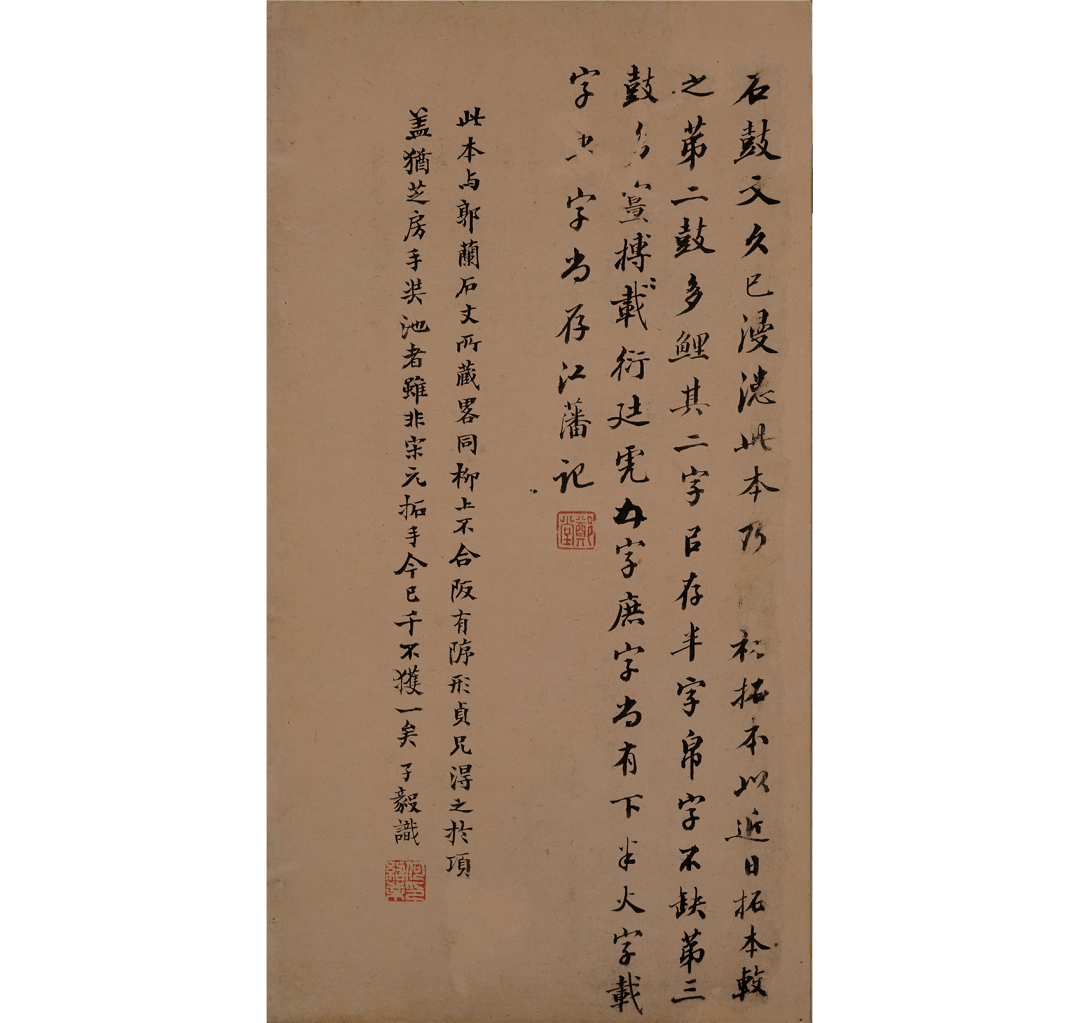 石鼓文久已漫漶此本乃初拓本以近日拓本較
之第二鼓多鯉其二字㠯存半字帛字不缺第三
鼓多搏載衍廷虎五字庶字尚有下半火字載
字字尚存江藩記
鄭堂
此本与郭蘭石丈所藏畧同柳上不合阪有㡿形貞兄淂之扵項
盖猶芝房手装池者雖非宋元拓手今已千不獲一矣子毅識